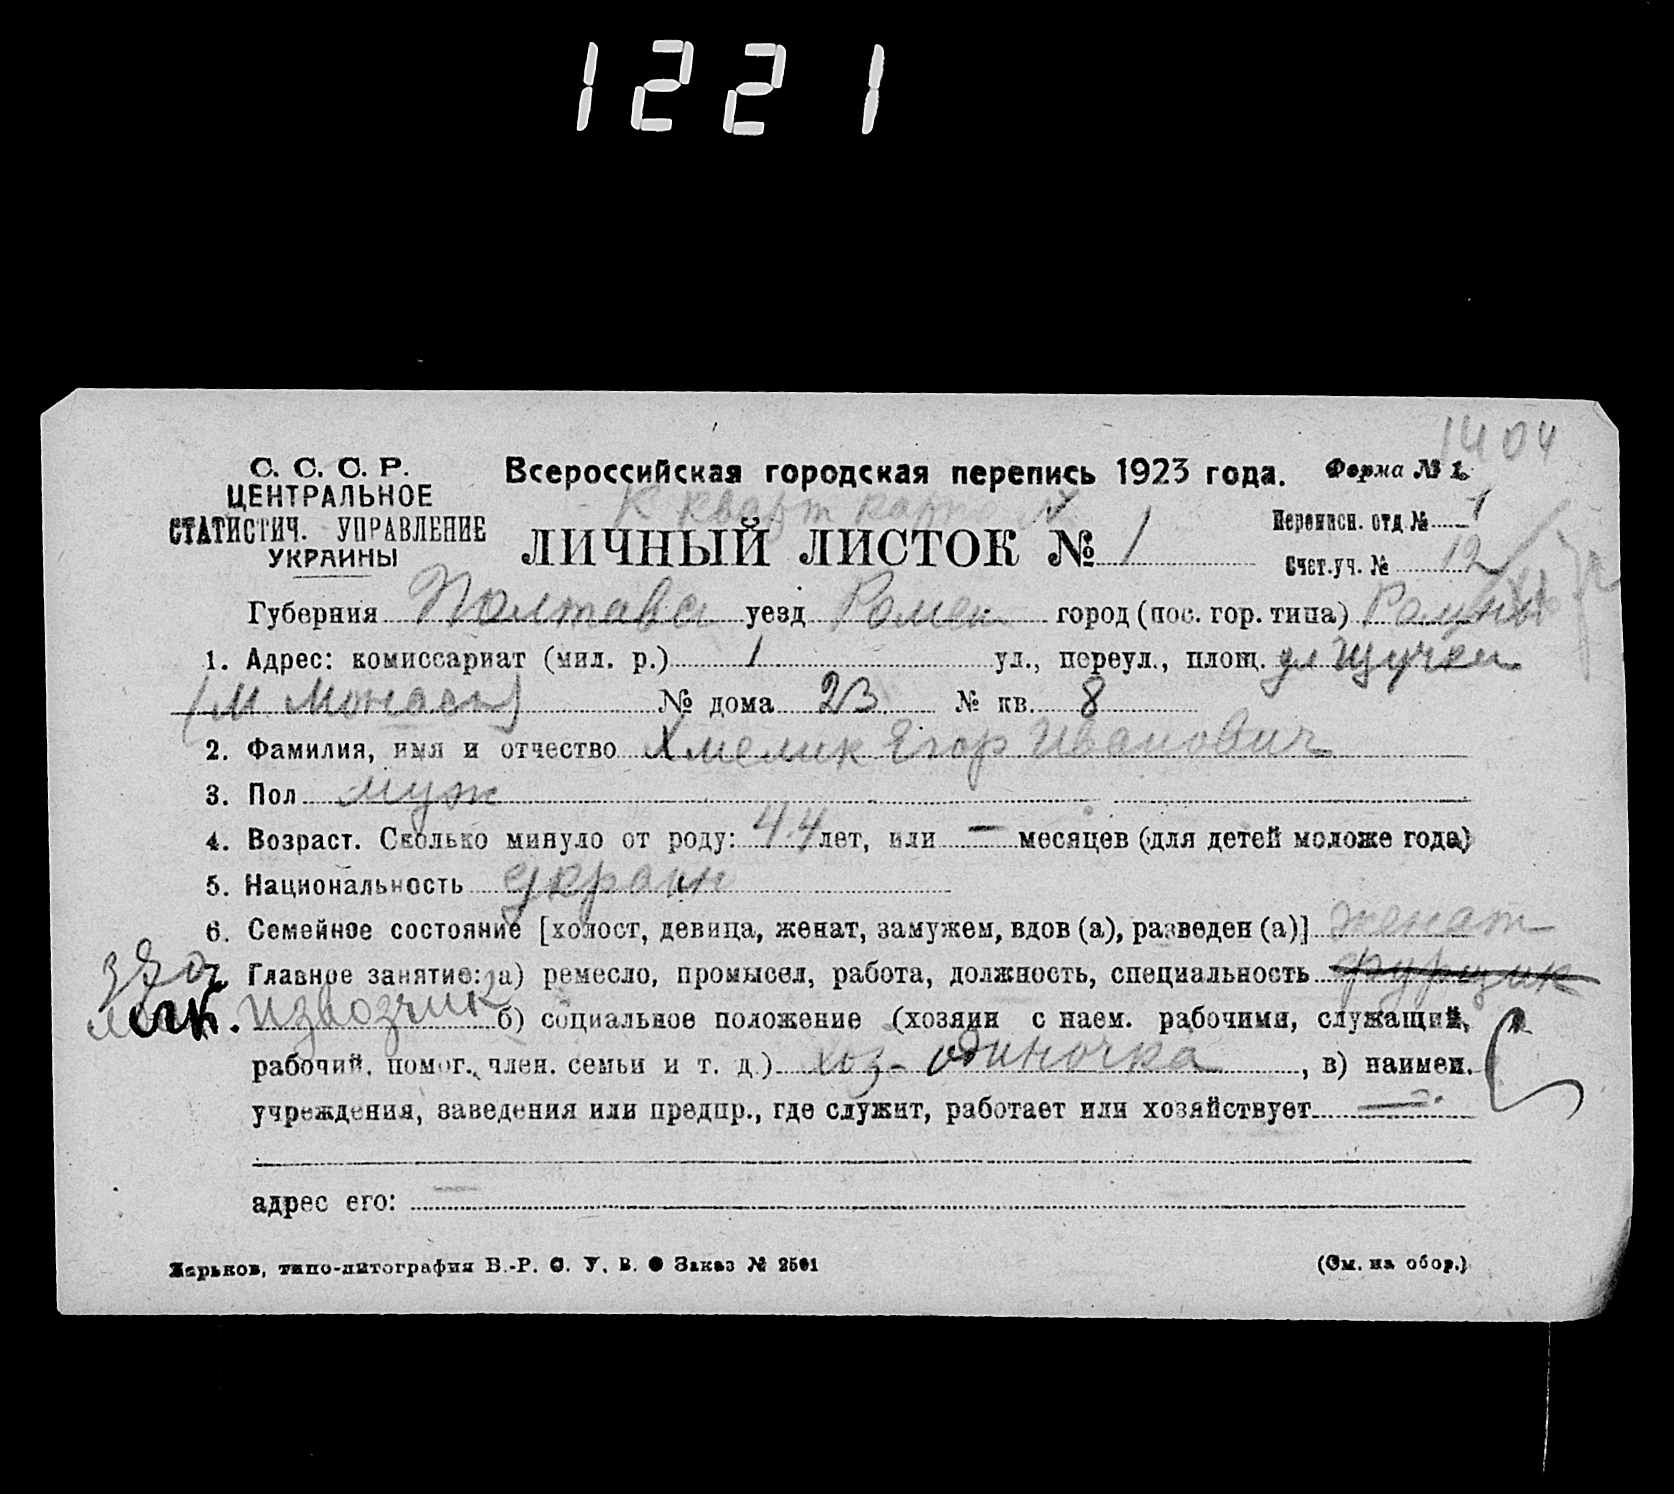 1221
1404
С. С. С. Р.
ЦЕНТРАЛЬНОЕ
СТАТИСТИЧ. УПРАВЛЕНИЕ
УКРАИНЫ
Всероссийская городская перепись 1923 года. Форма № 1.
К кварт карт
ЛИЧНЫЙ ЛИСТОК № 1
Переписн. отд № 1
Счет.уч. № 12
Губерния Полтавс уезд Ромен город (пос. гор. типа) Ромны
1. Адрес: комиссариат (мил. р.) 1 ул., переул., площ. ул Щучки
(М. Монаст) № дома 23 № кв. 8
2. Фамилия, имя и отчество Хмелик Егор Иванович
3. Пол муж
4. Возраст. Сколько минуло от роду: 44 лет, или — месяцев (для детей моложе года)
5. Национальность украин
6. Семейное состояние [холост, девица, женат, замужем, вдов (а), разведен (а)] женат
7. Главное занятие: а) ремесло, промысел, работа, должность, специальность фурщик
легк. извозчик б) социальное положение (хозяин с наем. рабочими, служащий,
рабочий, помог., член. семьи и т. д.) хоз-одиночка, в) наимен.
учреждения, заведения или предпр., где служит, работает или хозяйствует —
адрес его:
Харьков, типо-литография В.-Р. С. У. В. Заказ № 2501 (См. на обор.)